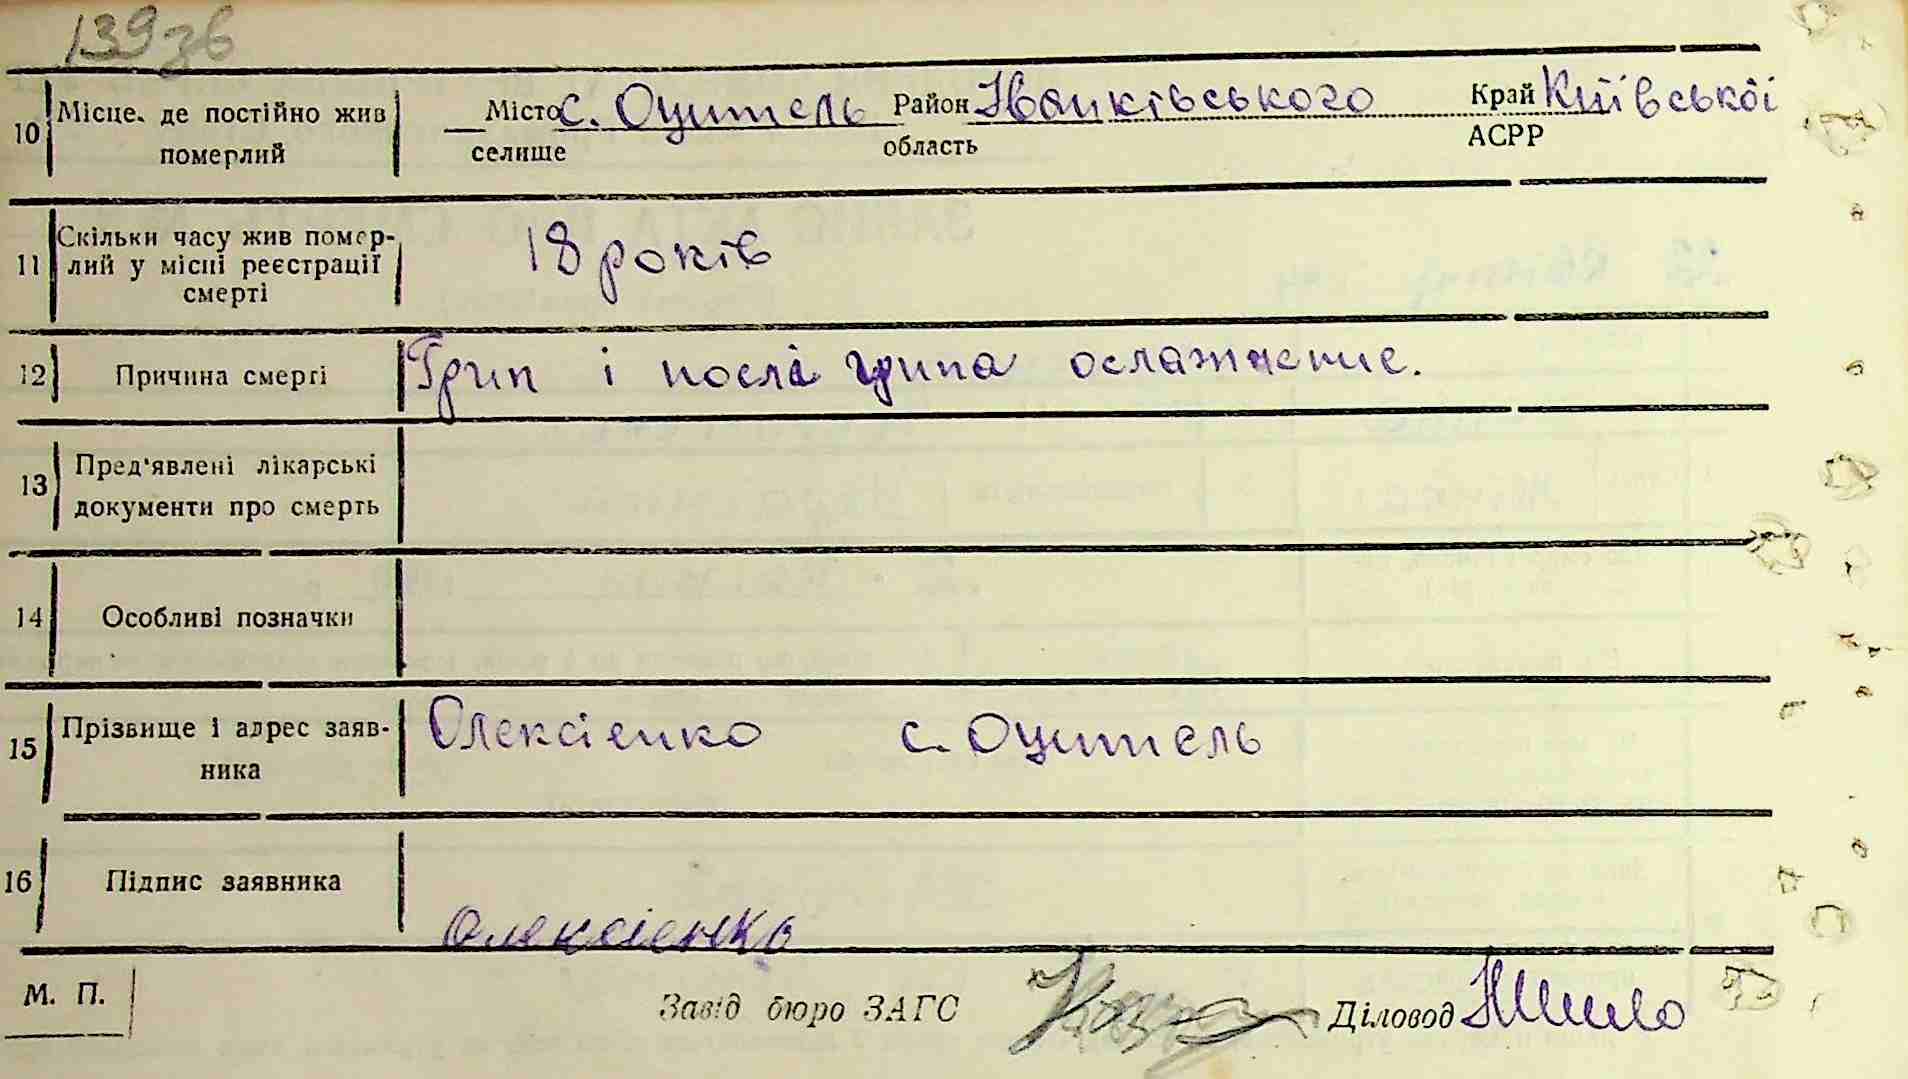 139 зв
10 Місце, де постійно жив померлий Місто с. Оцитель Район Іванківського Край Київської
селище область АСРР
11 Скільки часу жив помер-
лий у місці реєстрації 18 років
смерті
12 Причина смерті Грип і послі грипа ослажнение.
13 Пред'явлені лікарські
документи про смерть
14 Особливі позначки
15 Прізвище і адрес заяв- Олексієнко с. Оцитель
ника
16 Підпис заявника Олексієнко
М. П. Завід бюро ЗАГС Діловод НШило